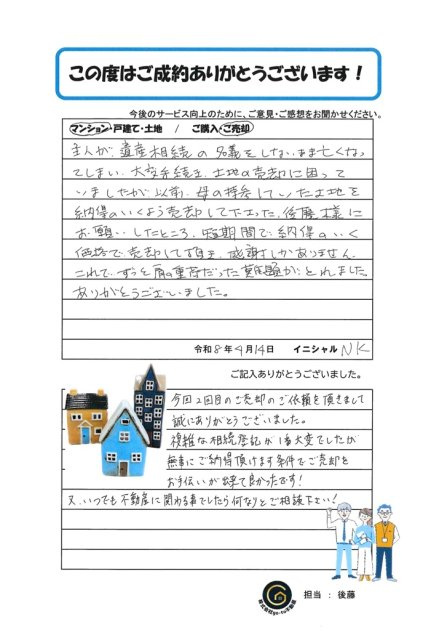 この度はご成約ありがとうございます！
今後のサービス向上のために、ご意見・ご感想をお聞かせください。
マンション・戸建て・土地 / ご購入・ご売却
主人が、遺産相続の名義をしないまま亡くなっ
てしまい、大変手続き、土地の売却に困って
いましたが以前、母の持参していた土地を
納得のいくよう売却して下さった、後藤様に
お願いしたところ、短期間で、納得のいく
価格で売却して頂き、感謝しかありません。
これで、ずっと肩の重荷だった問題がとれました。
ありがとうございました。
令和8年4月14日 イニシャル NK
ご記入ありがとうございました。
今回2回目のご売却のご依頼を頂きまして
誠にありがとうございました。
複雑な相続登記が1番大変でしたが
無事にご納得頂けます条件でご売却を
お手伝いが出来て良かったです!
又、いつでも不動産に関わる事でしたら何なりとご相談下さい!
担当 : 後藤